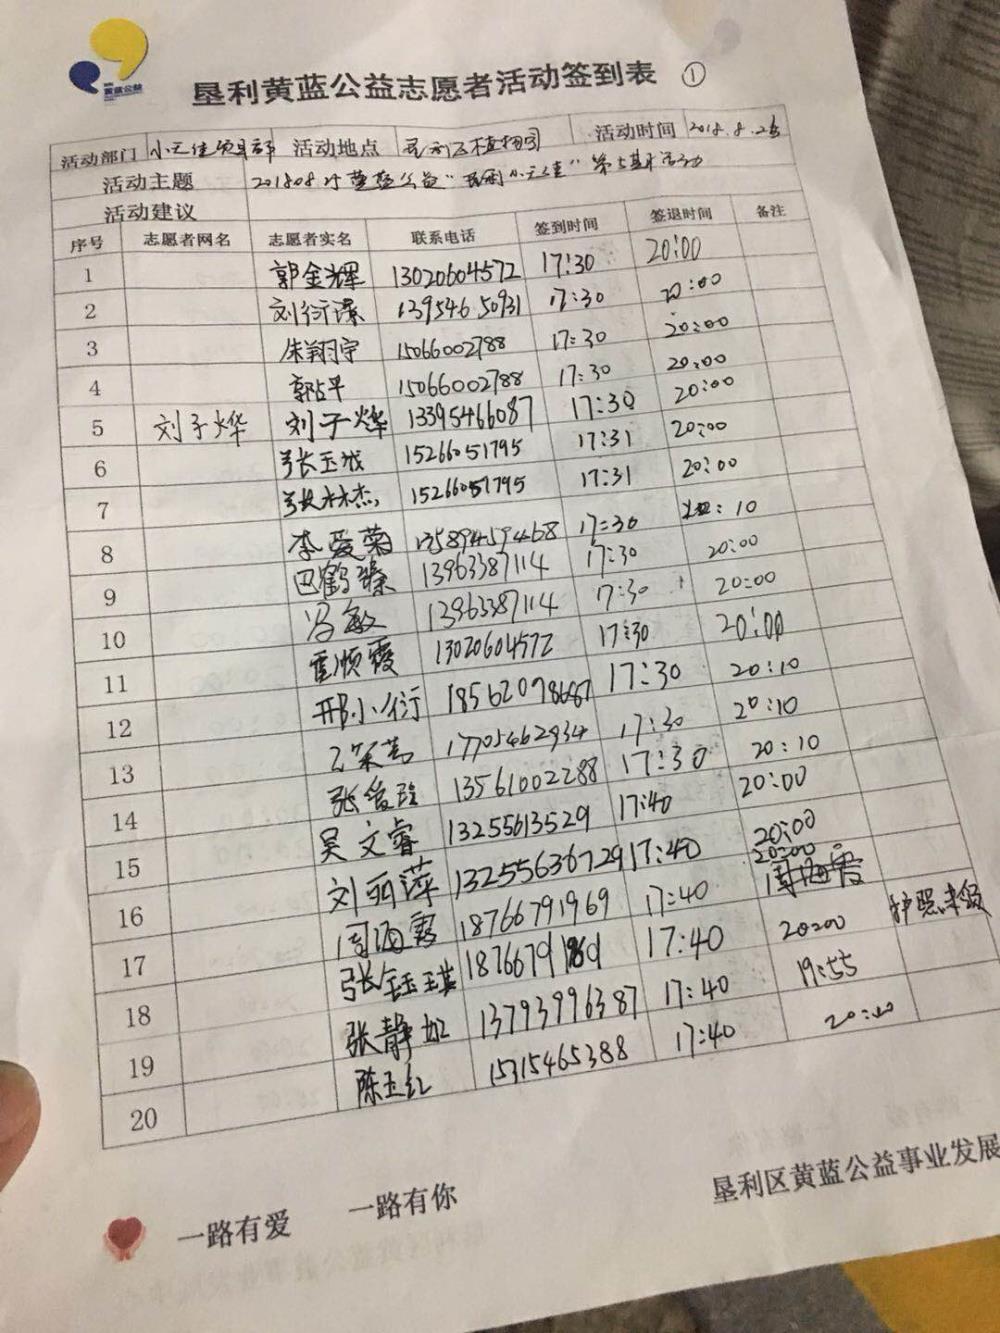 黄蓝公益
垦利黄蓝公益志愿者活动签到表 ①
活动部门 活动地点 活动时间 2018.8.26
活动主题 第5期活动
活动建议
序号 志愿者网名 志愿者实名 联系电话 签到时间 签退时间 备注
1 郭金辉 13020604572 17:30 20:00
2 刘衍溱 13954650931 17:30 20:00
3 朱翔宇 15066002788 17:30 20:00
4 郭占平 15066002788 17:30 20:00
5 刘子烨 刘子烨 13395466087 17:30 20:00
6 张玉成 15266051795 17:31 20:00
7 张林杰 15266051795 17:31 20:00
8 李爱菊 13589459468 17:30 : 10
9 巴鹤臻 13963387114 17:30 20:00
10 冯敏 13963387114 17:30 20:00
11 顺霞 13020604572 17:30 20:00
12 邢小衍 18562078687 17:30 20:10
13 17705462934 17:30 20:10
14 张 13561002288 17:30 20:10
15 吴文睿 13255613529 17:40 20:00
16 刘丽萍 13255636729 17:40 20:00
17 周海霞 18766791969 17:40 20:00 周海霞
18 张钰琪 1876679 17:40 20:00
19 张静如 13793996387 17:40 19:55
20 陈玉红 15315465388 17:40
一路有爱 一路有你
垦利区黄蓝公益事业发展